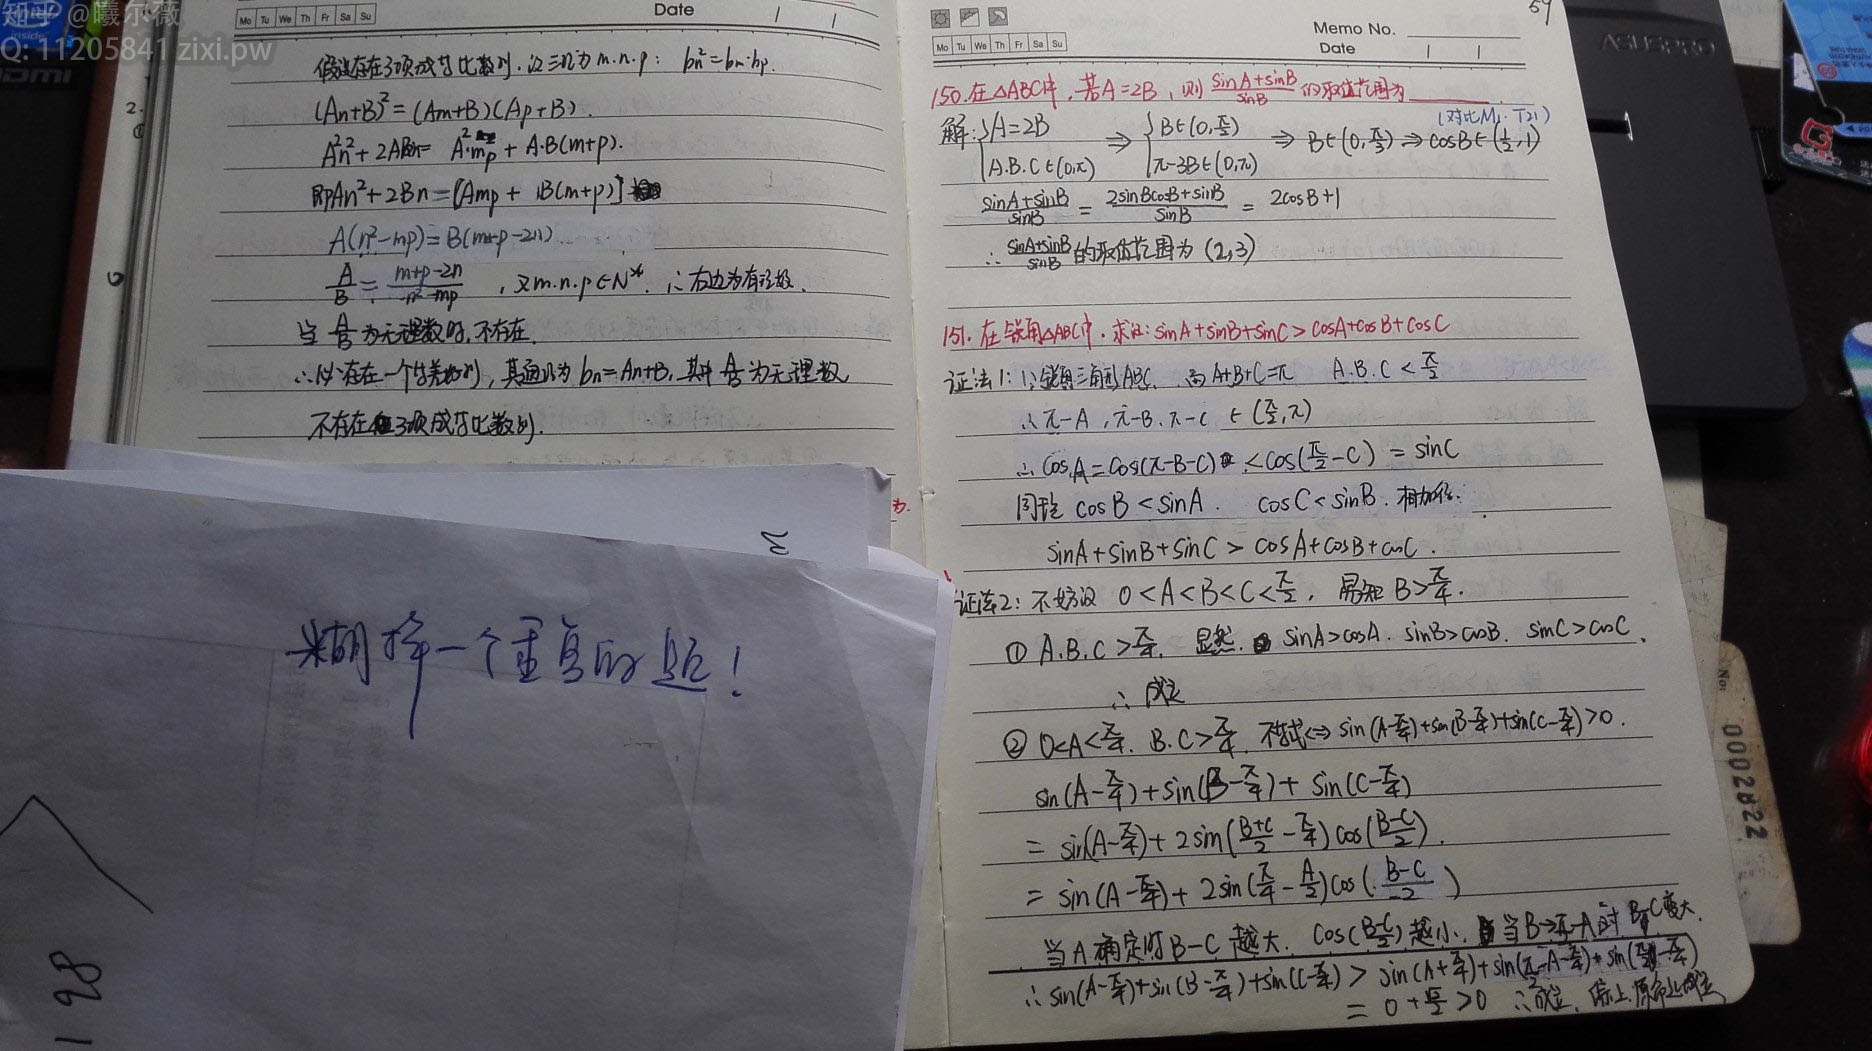 知乎 @曦尔薇
Q: 11205841 zixi.pw
inside
HDMI
Mo Tu We Th Fr Sa Su
Date
假设存在3项成等比数列.设三项为m.n.p: bn²=bm·bp.
2.
①
(An+B)²=(Am+B)(Ap+B).
A²n²+2ABn= A²mp+A·B(m+p).
即An²+2Bn=[Amp+ B(m+p)]
A(n²-mp)=B(m+p-2n)
A/B = (m+p-2n)/(n²-mp) , 又m.n.p∈N*. ∴右边为有理数.
当 A/B 为无理数时,不存在.
∴必存在一个等差数列,其通项为bn=An+B,其中 A/B 为无理数
不存在3项成等比数列.
为.
糊掉一个重复的题!
198
59
Mo Tu We Th Fr Sa Su
Memo No.
Date
150.在△ABC中,若A=2B,则 (sinA+sinB)/sinB 的取值范围为
(对比M1.T21)
解:{A=2B A.B.C∈(0,π) ⇒ {B∈(0,π/2) π-3B∈(0,π) ⇒ B∈(0,π/3) ⇒ cosB∈(1/2,1)
(sinA+sinB)/sinB = (2sinBcosB+sinB)/sinB = 2cosB+1
∴ (sinA+sinB)/sinB 的取值范围为 (2,3)
151.在锐角△ABC中.求证:sinA+sinB+sinC>cosA+cosB+cosC
证法1:∵锐角三角形ABC. 而A+B+C=π A.B.C<π/2
∴π-A,π-B.π-C ∈(π/2,π)
∴cosA=cos(π-B-C) <cos(π/2-C) = sinC
同理 cosB<sinA. cosC<sinB.相加得:
sinA+sinB+sinC > cosA+cosB+cosC.
证法2:不妨设 0<A<B<C<π/2, 易知 B>π/4.
① A.B.C>π/4. 显然. sinA>cosA. sinB>cosB. sinC>cosC.
∴成立
② 0<A<π/4. B.C>π/4. 不等式⇔sin(A-π/4)+sin(B-π/4)+sin(C-π/4)>0.
sin(A-π/4)+sin(B-π/4)+sin(C-π/4)
= sin(A-π/4)+2sin((B+C)/2-π/4)cos((B-C)/2).
= sin(A-π/4)+2sin(π/4-A/2)cos((B-C)/2)
当A确定时B-C越大. cos((B-C)/2)越小. 当B→π/2-A时 B-C变大.
∴sin(A-π/4)+sin(B-π/4)+sin(C-π/4) > sin(A+π/4)+sin(π/2-A-π/4)+sin(π/2-π/4)
= 0+√2/2>0 ∴成立. 综上.原命题成立
ASUSPRO
No:
0002822